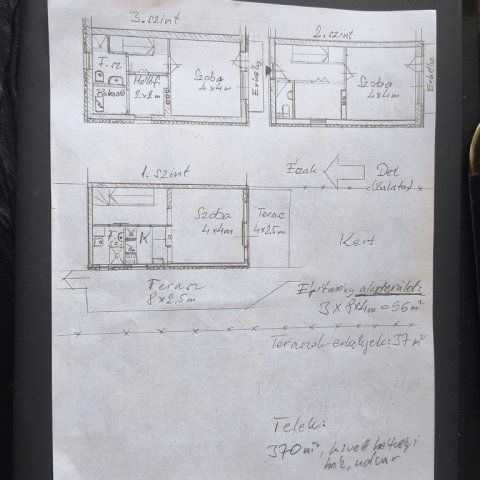 3. szint
2. szint
F.sz
Háló
2x2m
Szoba
4x4m
Erkély
Szoba
4x4m
Erkély
1. szint
Észak
Dél
(Balaton)
K
Szoba
4x4m
Terasz
4x2,5m
F.
K
Kert
Terasz
8x2,5m
Építmény alapterület:
3 x 8x4m = 96 m²
Teraszok-erkélyek: 37 m²
Telek:
370 m², kivett hétvégi
ház, udvar